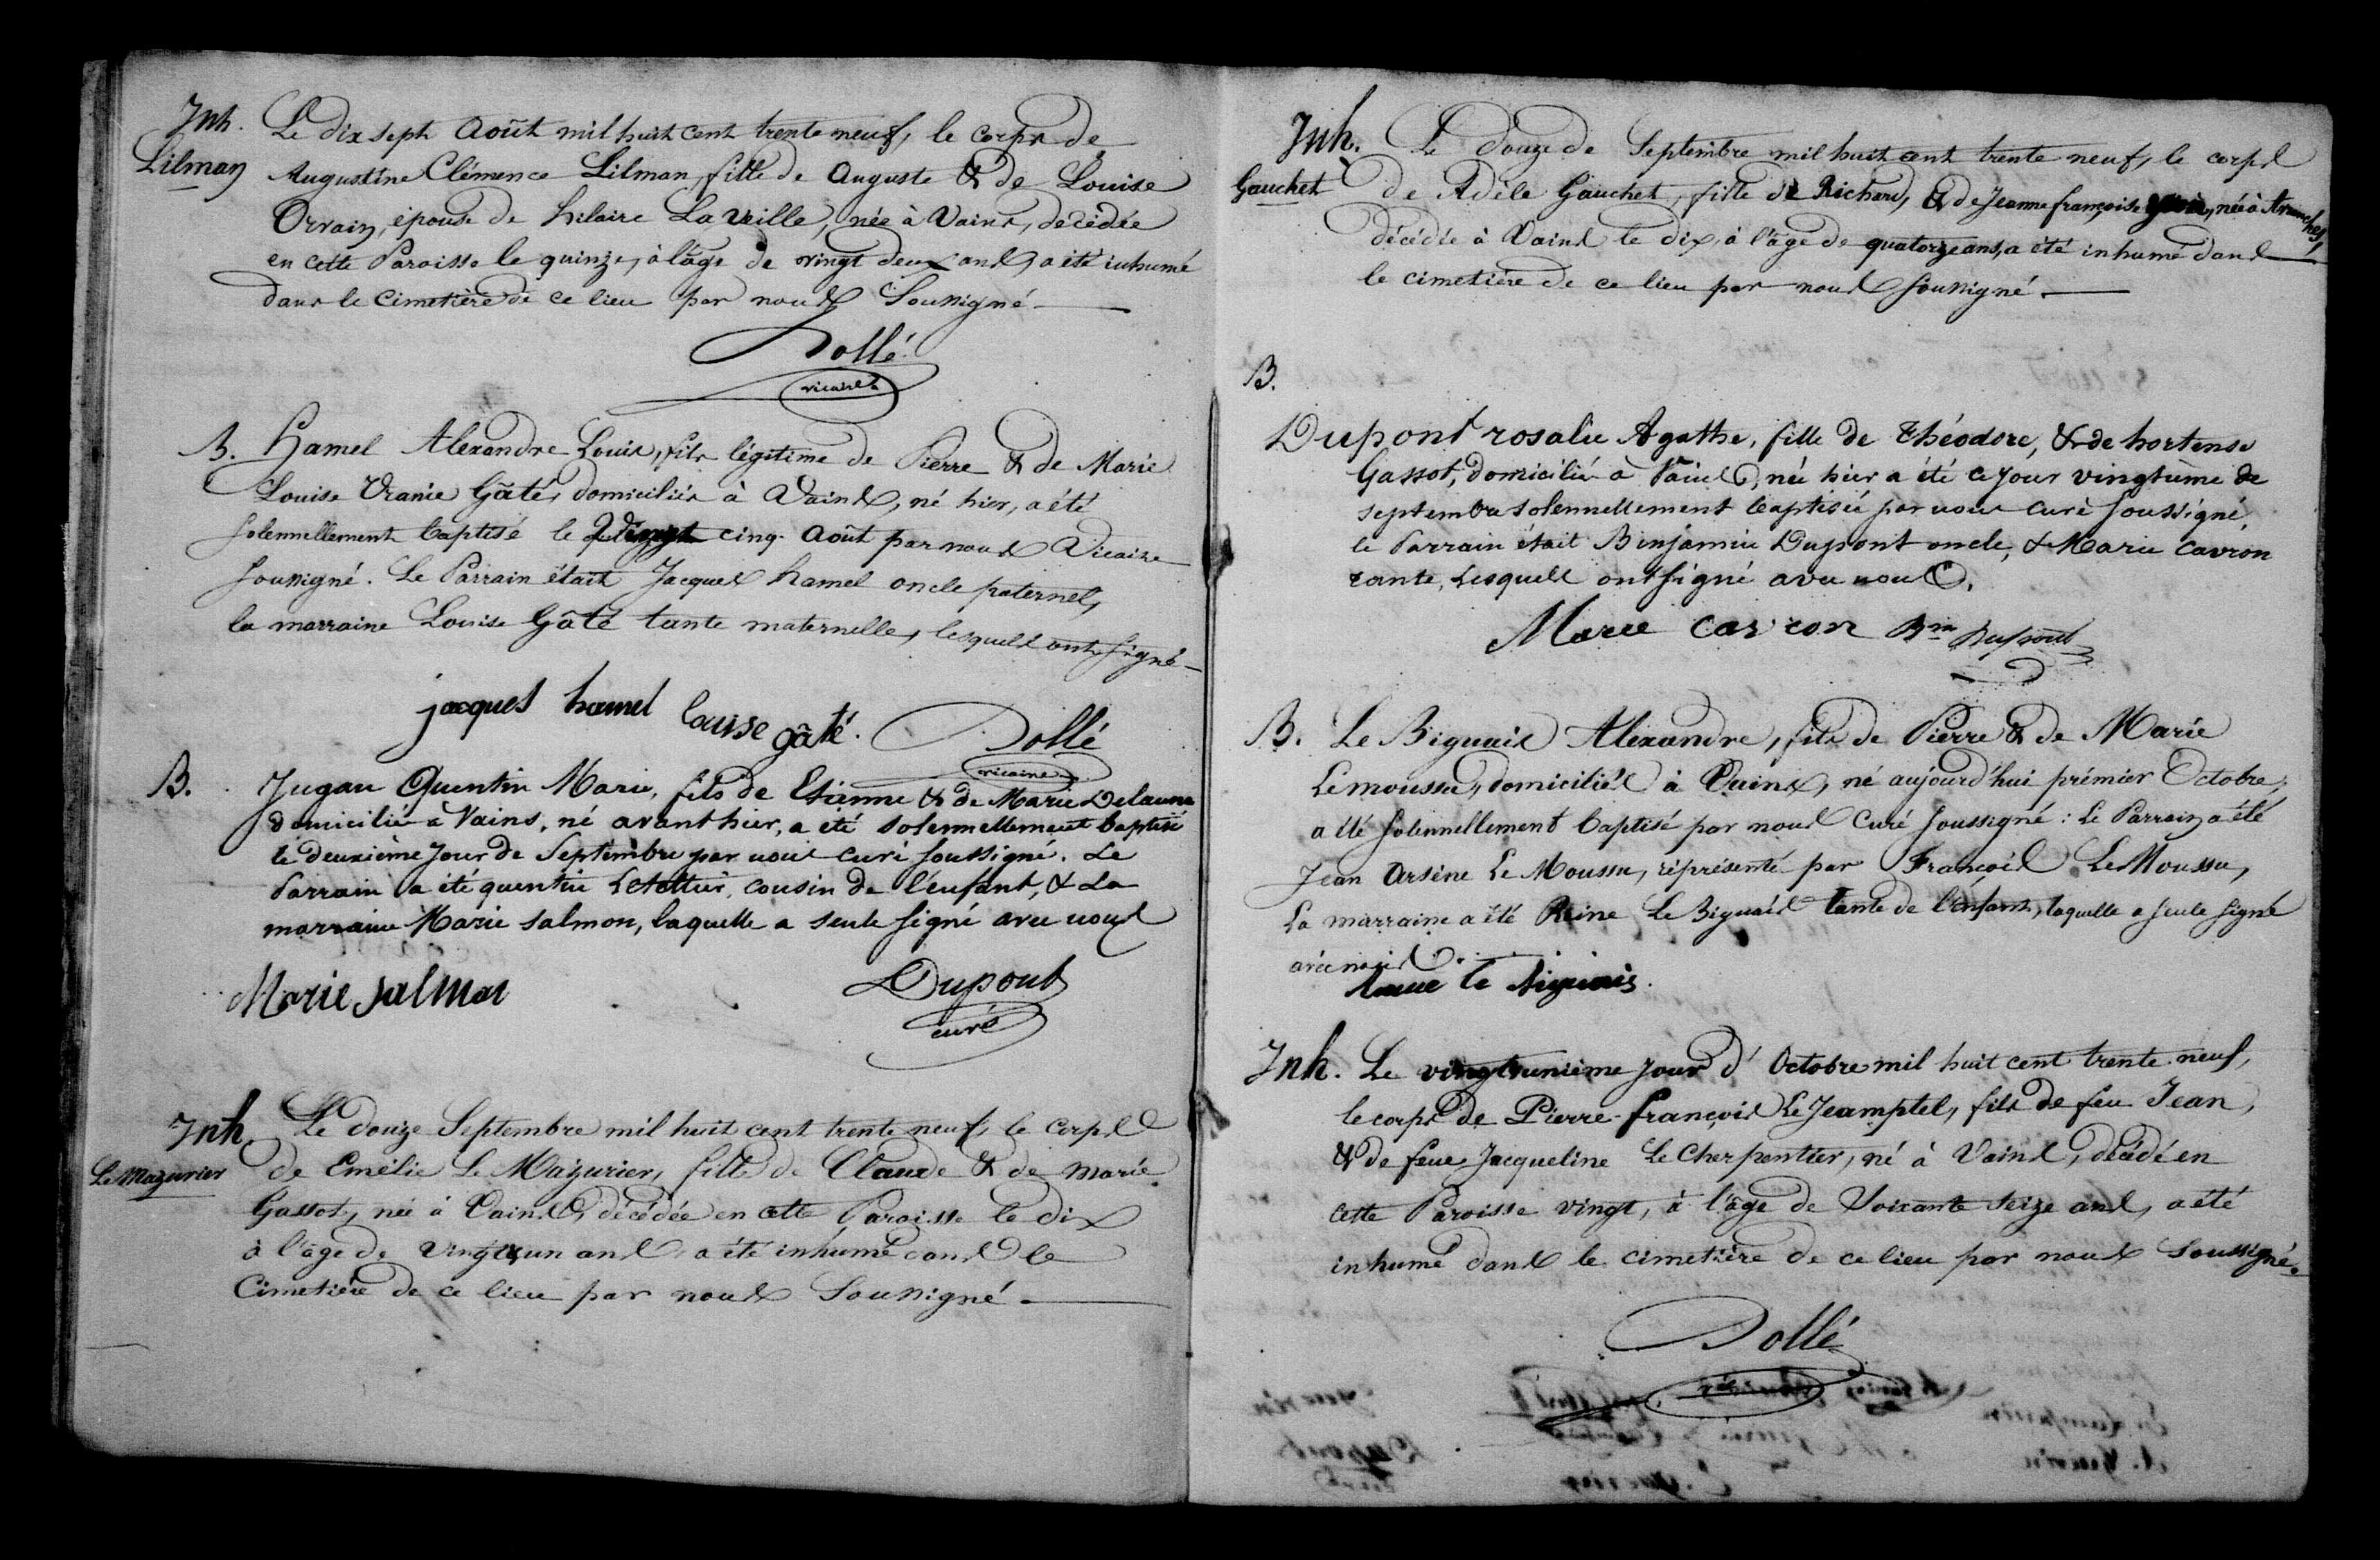 Inh. Le dix sept Août mil huit cent trente neuf, le corps de
Lilman Augustine Clémence Lilman, fille de Auguste & de Louise
Orvain, épouse de hilaire La Veille, née à Vains, décédée
en cette Paroisse le quinze, à l'âge de vingt deux ans, a été inhumé
dans le Cimetière de ce lieu par nous Soussigné
Dollé
vicaire
B. Hamel Alexandre Louis, fils légitime de Pierre & de Marie
Louise Uranie Gâté, domiciliés à Vains, né hier, a été
solennellement baptisé le vingt cinq Août par nous Vicaire
soussigné. Le Parrain était Jacques hamel oncle paternel,
la marraine Louise Gâté tante maternelle, lesquels ont signé
jacques hamel louise gâté. Dollé
vicaire
B. Jugan Quentin Marie, fils de Etienne & de Marie Delaune
domicilié à Vains, né avant hier, a été solennellement baptisé
le deuxième jour de Septembre par nous curé soussigné. Le
Parrain a été quentin cousin de l'enfant, & La
marraine Marie salmon, laquelle a seule signé avec nous
Marie salmon Dupont
curé
Inh. Le douze Septembre mil huit cent trente neuf, le corps
Le Mazurier de Emélie Le Mazurier, fille de Claude & de Marie
Gassot, née à Vains, décédée en cette Paroisse le dix
à l'âge de vingt un ans, a été inhumé dans le
Cimetière de ce lieu par nous Soussigné
Inh. Le douze de Septembre mil huit cent trente neuf, le corps
Gauchet de Adèle Gauchet, fille de Richard, & de Jeanne françoise née à Avranches,
décédée à Vains le dix, à l'âge de quatorze ans, a été inhumé dans
le cimetière de ce lieu par nous soussigné
B.
Dupont rosalie Agathe, fille de théodore, & de hortense
Gassot, domicilié à Vains, née hier a été ce jour vingtième de
septembre solennellement baptisée par nous curé soussigné,
le Parrain était Binjamin Dupont oncle, & Marie Cavron
tante, Lesquels ont signé avec nous.
Marie cavron Bin Dupont
B. Le Biguais Alexandre, fils de Pierre & de Marie
Lemoussu, domiciliés à Vains, né aujourd'hui prémier Octobre,
a été solennellement baptisé par nous Curé soussigné : Le Parrain a été
Jean Arsène Le Moussu, réprésenté par François Le Moussu,
La marraine a été Reine Le Biguais tante de l'enfant, laquelle a seule signé
avec nous.
le
Inh. Le vingtunième jour d'Octobre mil huit cent trente neuf,
le corps de Pierre-françois Le Jeamptel, fils de feu Jean,
& de feue Jacqueline Le Charpentier, né à Vains, décédé en
cette Paroisse vingt, à l'âge de Soixante seize ans, a été
inhumé dans le cimetière de ce lieu par nous Soussigné.
Dollé